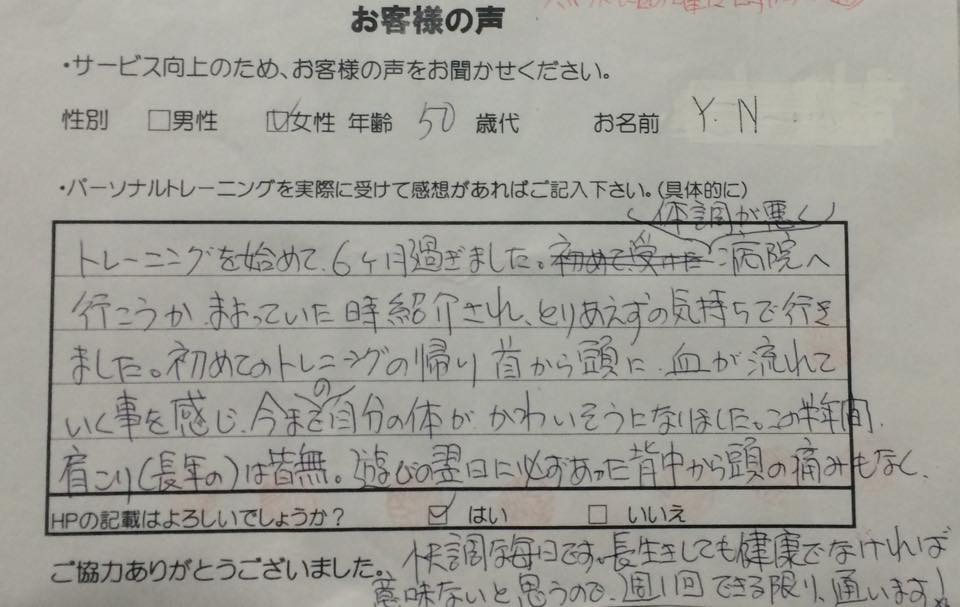 お客様の声
・サービス向上のため、お客様の声をお聞かせください。
性別 □男性 ☑女性 年齢 50 歳代 お名前 Y. N
・パーソナルトレーニングを実際に受けて感想があればご記入下さい。(具体的に)
(体調が悪く)
トレーニングを始めて、6ヶ月過ぎました。初めて受けた 病院へ
行こうか まよっていた時紹介され、とりあえずの気持ちで行き
ました。初めてのトレーニングの帰り 首から頭に、血が流れて
いく事を感じ、今までの自分の体が かわいそうになりました。この半年間、
肩こり(長年の)は皆無。遊びの翌日に必ずあった背中から頭の痛みもなく、
HPの記載はよろしいでしょうか? ☑ はい □ いいえ
快調な毎日です。長生きしても健康でなければ
ご協力ありがとうございました。
意味ないと思うので、週1回できる限り、通います!